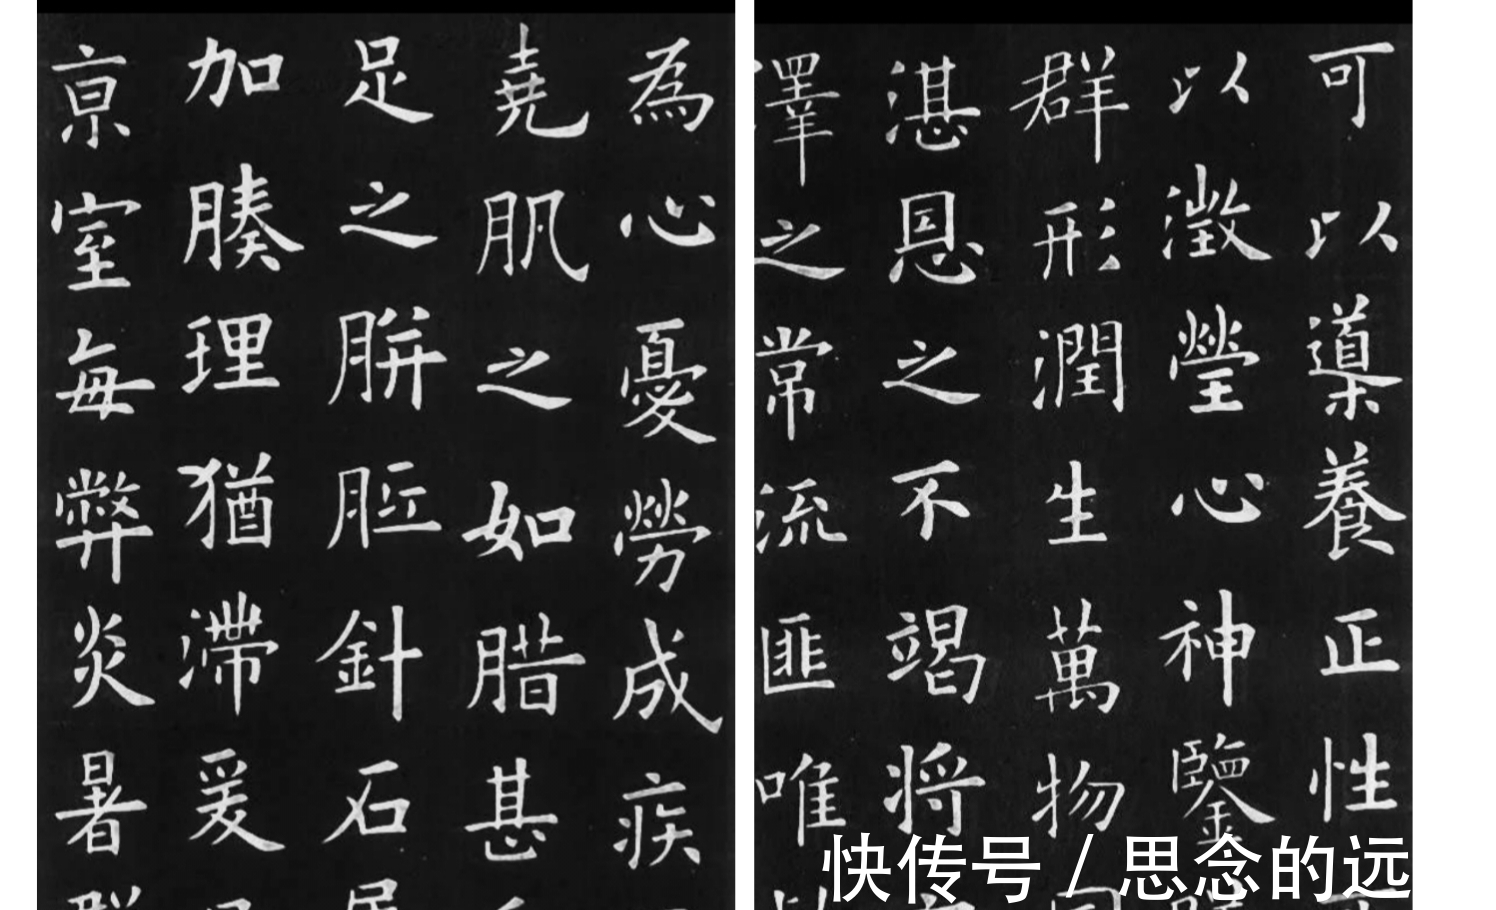 可以導養正性
以瀓瑩心神鑒
群形潤生萬物
湛恩之不竭将
澤之常流匪唯
為心憂勞成疾
堯肌之如腊甚
足之胼胝針石
加腠理猶滯爰
京室每弊炎暑
快传号 / 思念的远